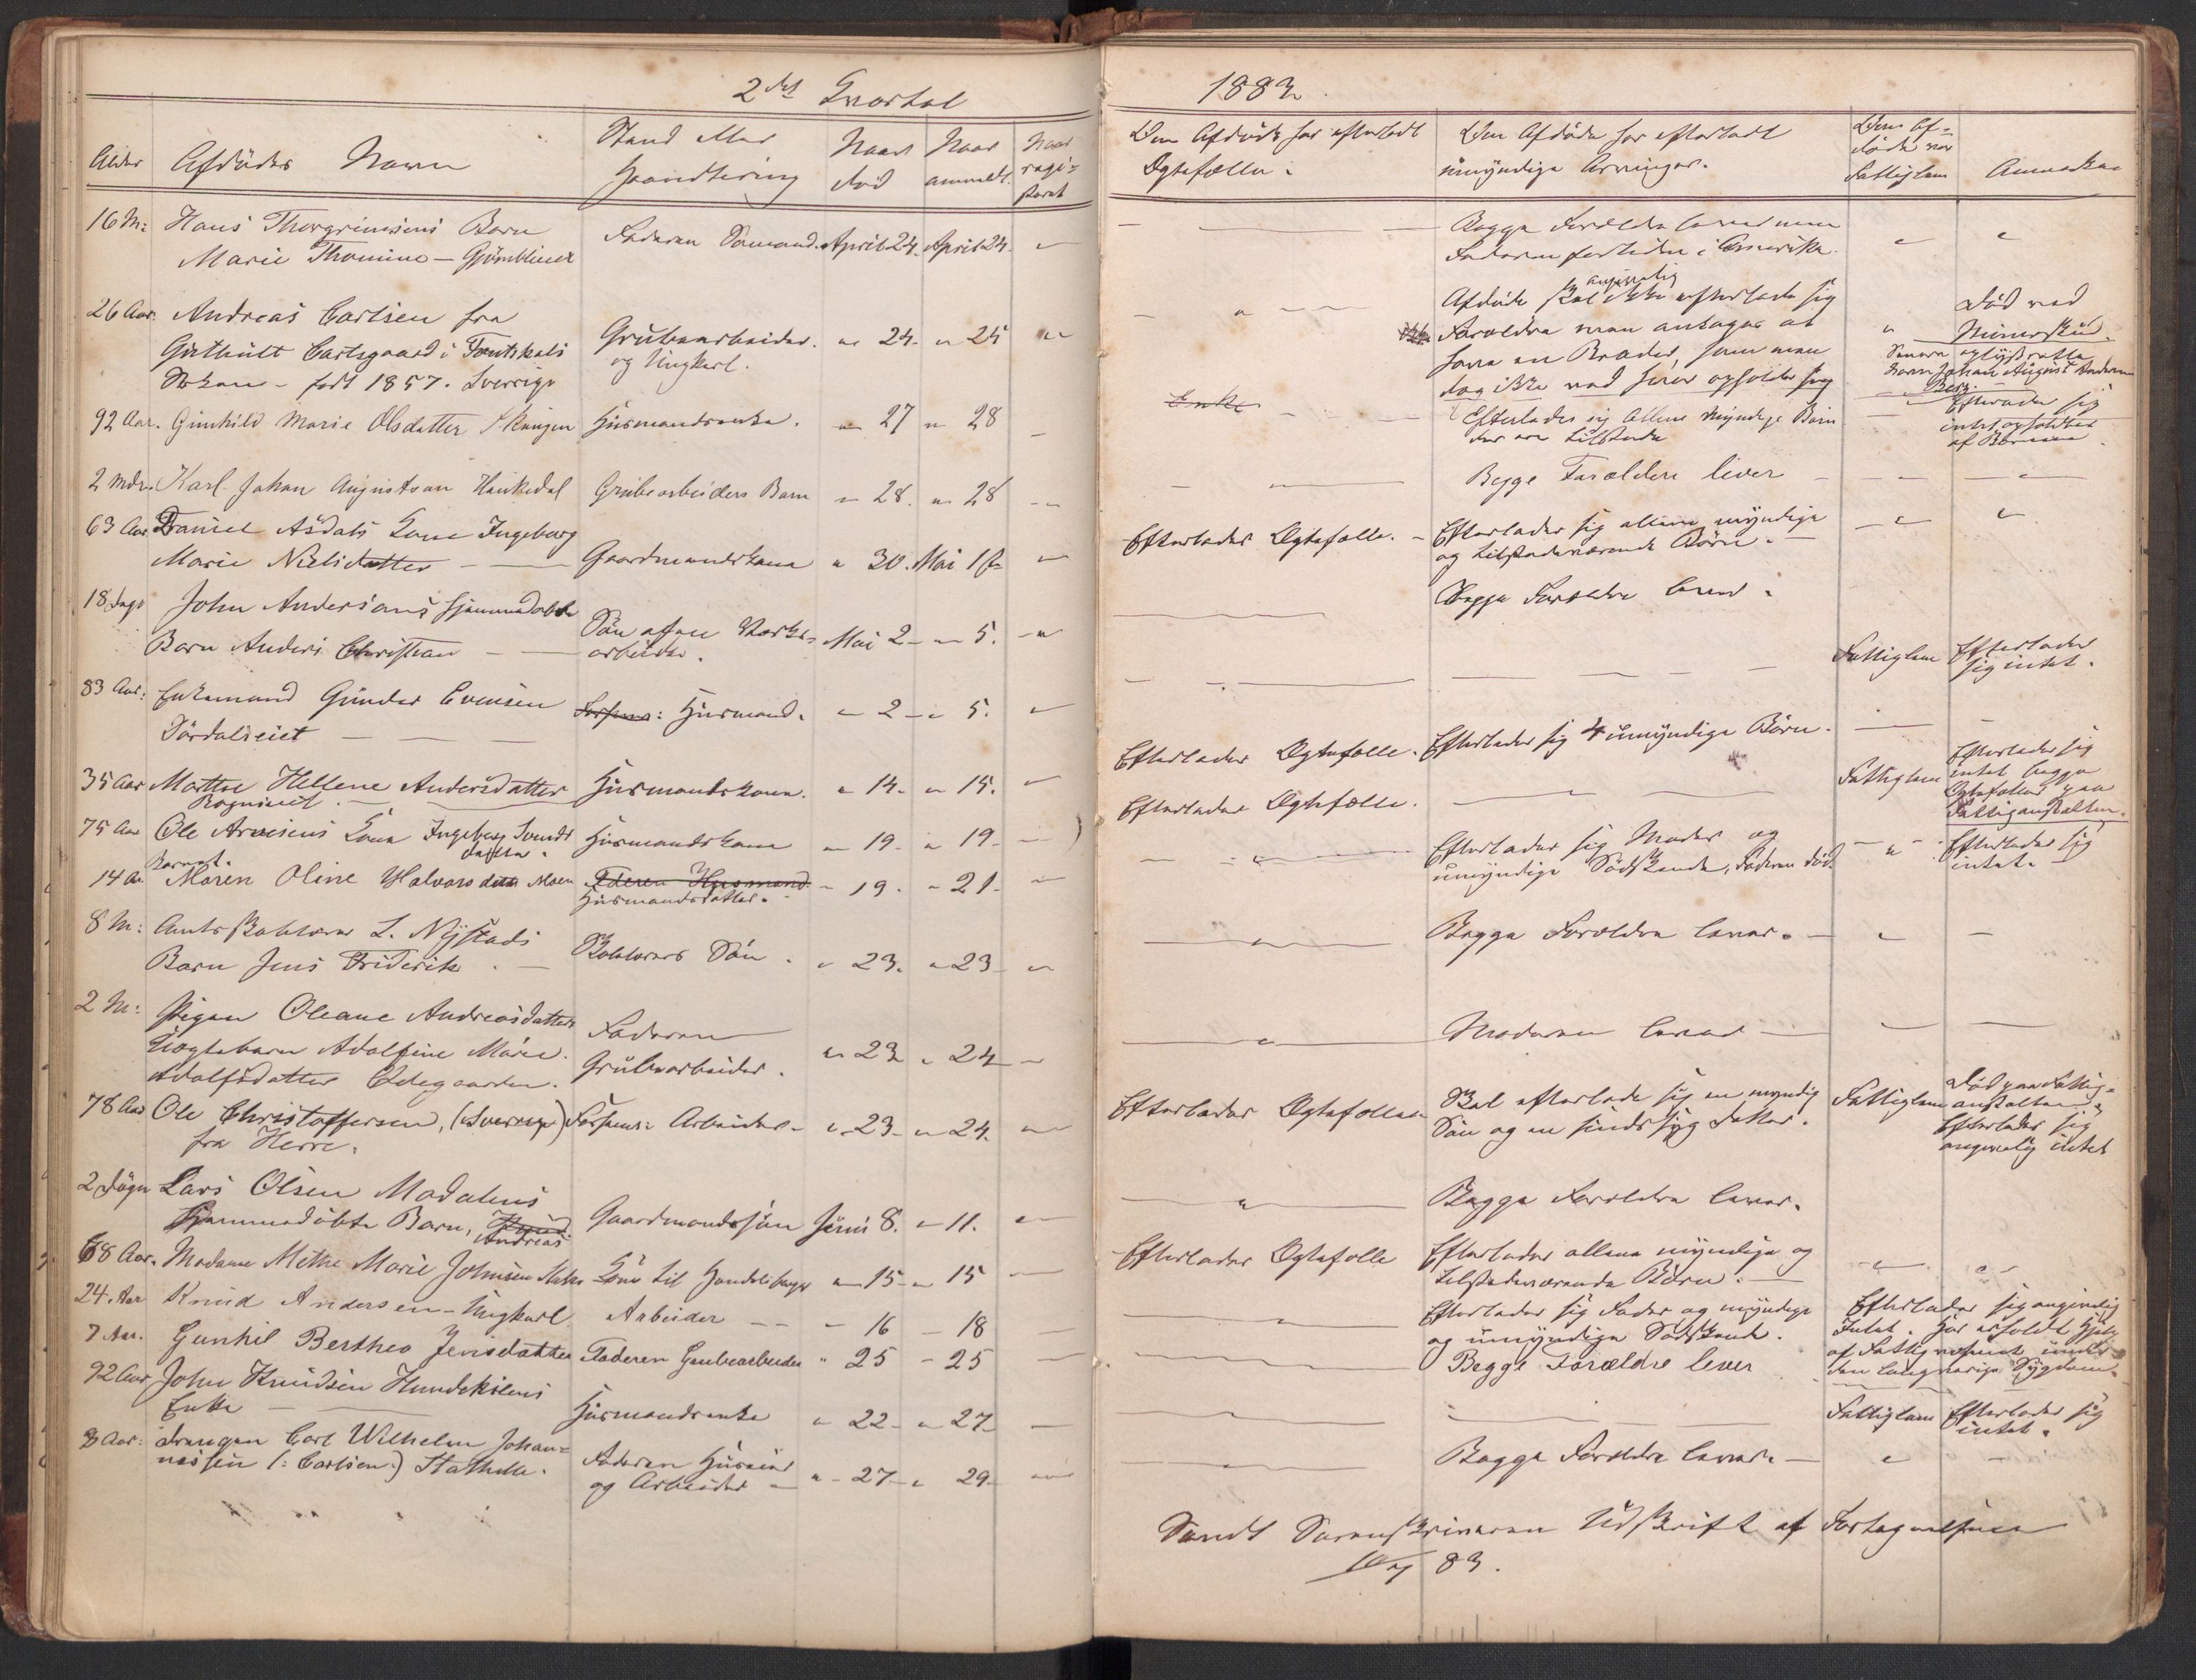 2det Qvartal
1883
Alder
Afdødes Navn
Stand eller Haandtering
Naar død
Naar anmeldt
Naar registreret
Om Afdøde har efterladt Ægtefælle.
Om Afdøde har efterladt umyndige Arvinger.
Om Afdøde var Fattiglem
Anmerkn.
16 M:
Hans Thorgrimsens Barn
Marie Thomine
Faderen Sømand. April 24. April 24.
Begge Forældre lever men
Faderen for tiden i Amerika.
26 Aar.
Andreas Carlsen fra
Carlsgaard i
født 1857. Sverrige
Grubearbeider. 24. 25
og Ungkarl.
Afdøde skal angivelig ikke efterlade sig
Forældre men antages at
have en Broder, som man
dog ikke ved hvor opholder sig
Død ved
Senere oplyst rette
Navn Johan August
92 Aar. Gunhild Marie Olsdatter Skougen Huusmandsenke. 27 28
Efterlader sig allene myndige Børn
der ere tilstede
Efterlader sig
intet opholdtes
af Børnene
2 Mdr. Karl Johan Augustsøn Grubearbeiders Barn 28. 28
Begge Forældere liver
63 Aar Daniel Asdals Kone Ingeborg
Marie Nielsdatter Gaardmandskone 30. Mai 1ste
Efterlader Ægtefælle.
Efterlader sig allene myndige
og tilstedeværende Børn.
18 Dage John Andersens hjemmedøbte
Barn Anders Christian
Søn af en Værksarbeider. Mai 2 5.
Begge Forældre lever.
83 Aar: Enkemand Gunder Evensen
Dørdalseiet
Huusmand. 2 5.
Fattiglem Efterlader
sig intet.
35 Aar Marthe Hellene Andersdatter Huusmandskone. 14. 15.
Efterlader Ægtefælle. Efterlader sig 4 umyndige Børn.
75 Aar Ole Arnesens Kone Ingeborg Svendsdatter. Huusmandskone 19. 19.
Efterlader Ægtefælle.
Fattiglem Efterlader sig
intet begge
Ægtefæller paa
Fattiganstalten.
14 A. Maren Oline Halvorsdatter Moen Faderen Husmand 19. 21.
Huusmandsdatter.
Efterlader sig Moder og
umyndige Sødskende, Faderen død.
Efterlader sig
intet.
8 M: Amtsskolelærer L. Nystads
Barn Jens Friderik.
Skolelærers Søn. 23. 23
Begge Forældre lever.
2 M: Pigen Oleane Andreasdatters
Uægtebarn Adolfine Marie
Adolfsdatter Ødegaarden.
Faderen
Grubearbeider. 23 24
Moderen lever
78 Aar Ole Christoffersen, (Sverrige)
fra Herre.
Arbeider. 23. 24.
Efterlader Ægtefælle.
Skal efterlade sig en myndig
Søn og en sindssyg Datter.
Fattiglem Død paa Fattiganstalten
Efterlader sig
angivelig intet
2 Døgn Lars Olsen Modalens
hjemmedøbte Barn, Knud
Andreas
Gaardmandssøn Juni 8. 11.
Begge Forældre lever.
68 Aar. Madame Methe Marie Johnsen Kone til 15 15
Efterlader Ægtefælle
Efterlader allene myndige og
tilstedeværende Børn.
24. Aar Knud Andersen Ungkarl Arbeider 16 18
Efterlader sig Fader og myndige
og umyndige Sødskende.
Efterlader sig angivelig
Intet. Har erholdt Hjelp
af Fattigvæsenet under
den langvarige Sygdom.
7 Aar. Gunhil Berthea Jensdatter Faderen Grubearbeider 25 25
Begge Forældre lever
92 Aar John Knudsen Hundekilens
Enke
Huusmandsenke 22 27
Fattiglem Efterlader sig
intet.
8 Aar: Drengen Carl Wilhelm Johannessen (: Carlsen :) Stathelle.
Faderen Huuseier
og Arbeider 27 29
Begge Forældre lever.
Sendt Sorenskriveren Udskrift af Fortegnelsen
83.